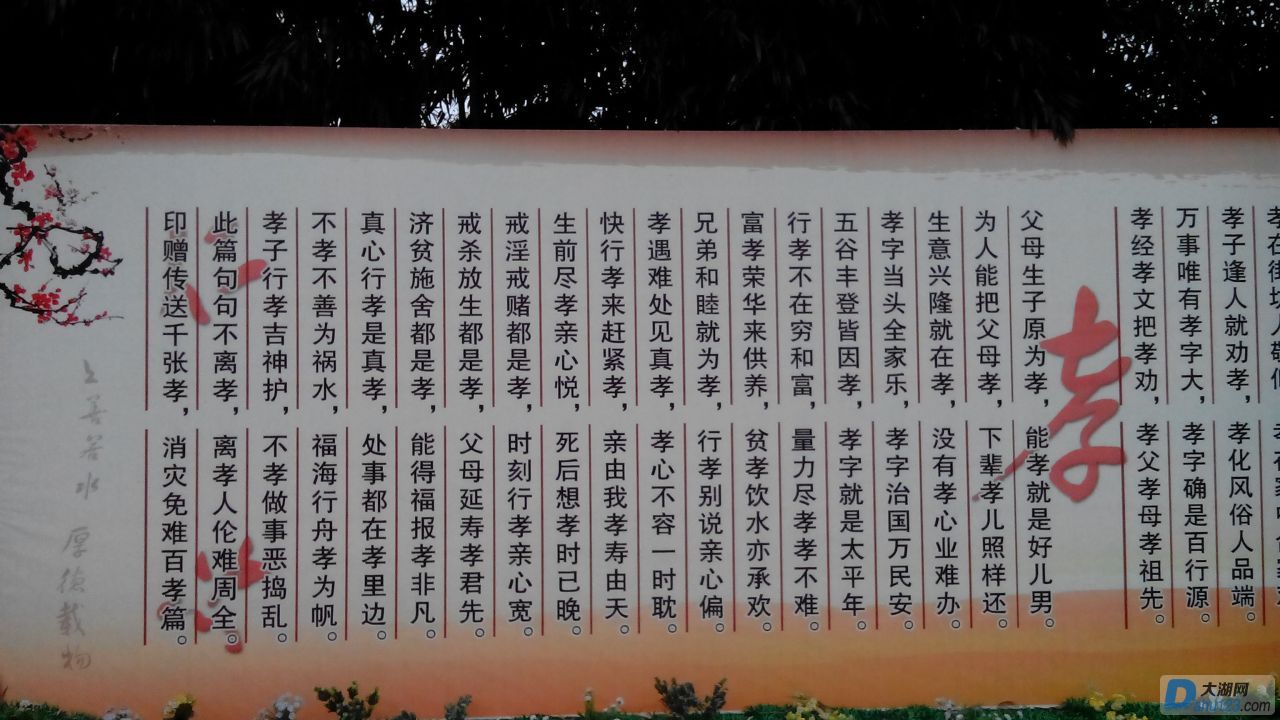 孝子逢人就劝孝，孝化风俗人品端。
万事唯有孝字大，孝字确是百行源。
孝经孝文把孝劝，孝父孝母孝祖先。
孝
父母生子原为孝，能孝就是好儿男。
为人能把父母孝，下辈孝儿照样还。
生意兴隆就在孝，没有孝心业难办。
孝字当头全家乐，孝字治国万民安。
五谷丰登皆因孝，孝字就是太平年。
行孝不在穷和富，量力尽孝孝不难。
富孝荣华来供养，贫孝饮水亦承欢。
兄弟和睦就为孝，行孝别说亲心偏。
孝遇难处见真孝，孝心不容一时耽。
快行孝来赶紧孝，亲由我孝寿由天。
生前尽孝亲心悦，死后想孝时已晚。
戒淫戒赌都是孝，时刻行孝亲心宽。
戒杀放生都是孝，父母延寿孝君先。
济贫施舍都是孝，能得福报孝非凡。
真心行孝是真孝，处事都在孝里边。
不孝不善为祸水，福海行舟孝为帆。
孝子行孝吉神护，不孝做事恶捣乱。
此篇句句不离孝，离孝人伦难周全。
印赠传送千张孝，消灾免难百孝篇。
上善若水 厚德载物
大湖网